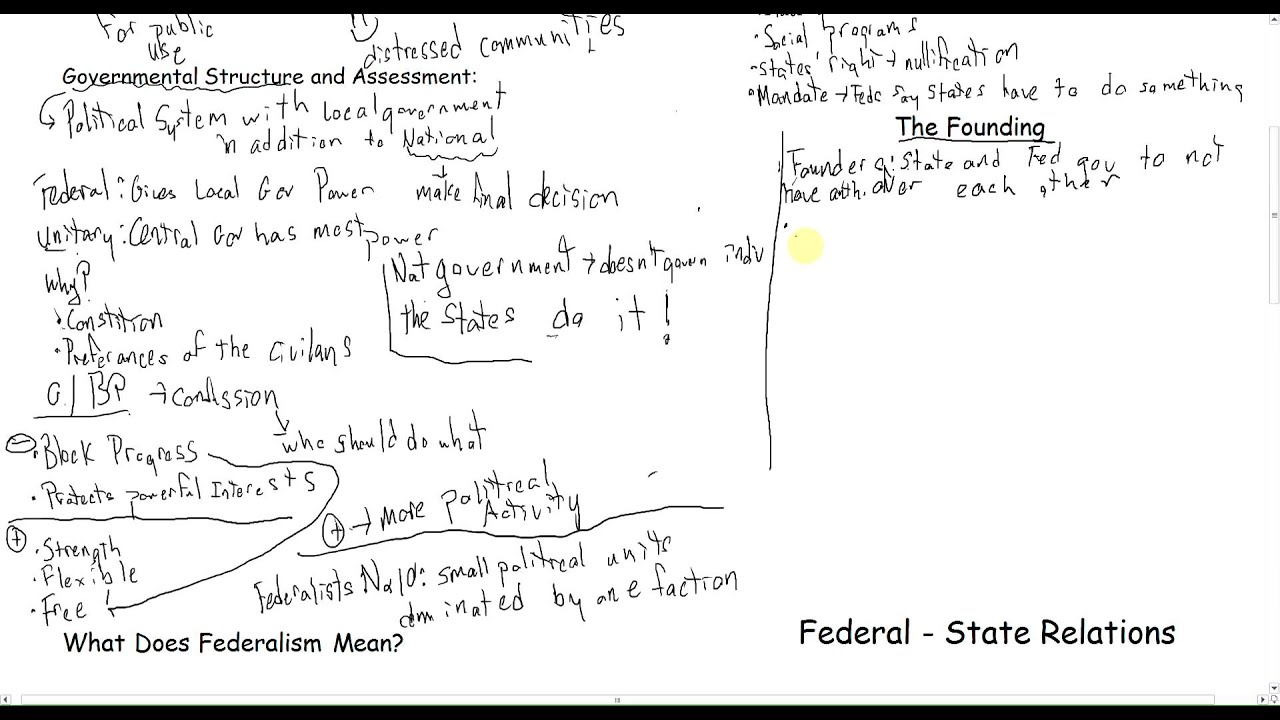 For public
use
distressed communities
Governmental Structure and Assessment:
Political System with local government
in addition to National
Federal: Gives Local Gov Power make final decision
unitary: Central Gov has most power
Why?
Nat government → doesn't govern indiv
the states do it!
• Constition
• Preferances of the civilans
G/BP →
who should do what
• Block Progress
• Protects powerful Interests
+ → More political
Activity
+
• Strength
• Flexible
• Free
Federalists No 10: small political units
dominated by one faction
What Does Federalism Mean?
• Social programs
• states' right → nullification
• Mandate → Fedc say States have to do something
The Founding
Founder : State and Fed gov to not
have auth. over each other
Federal - State Relations